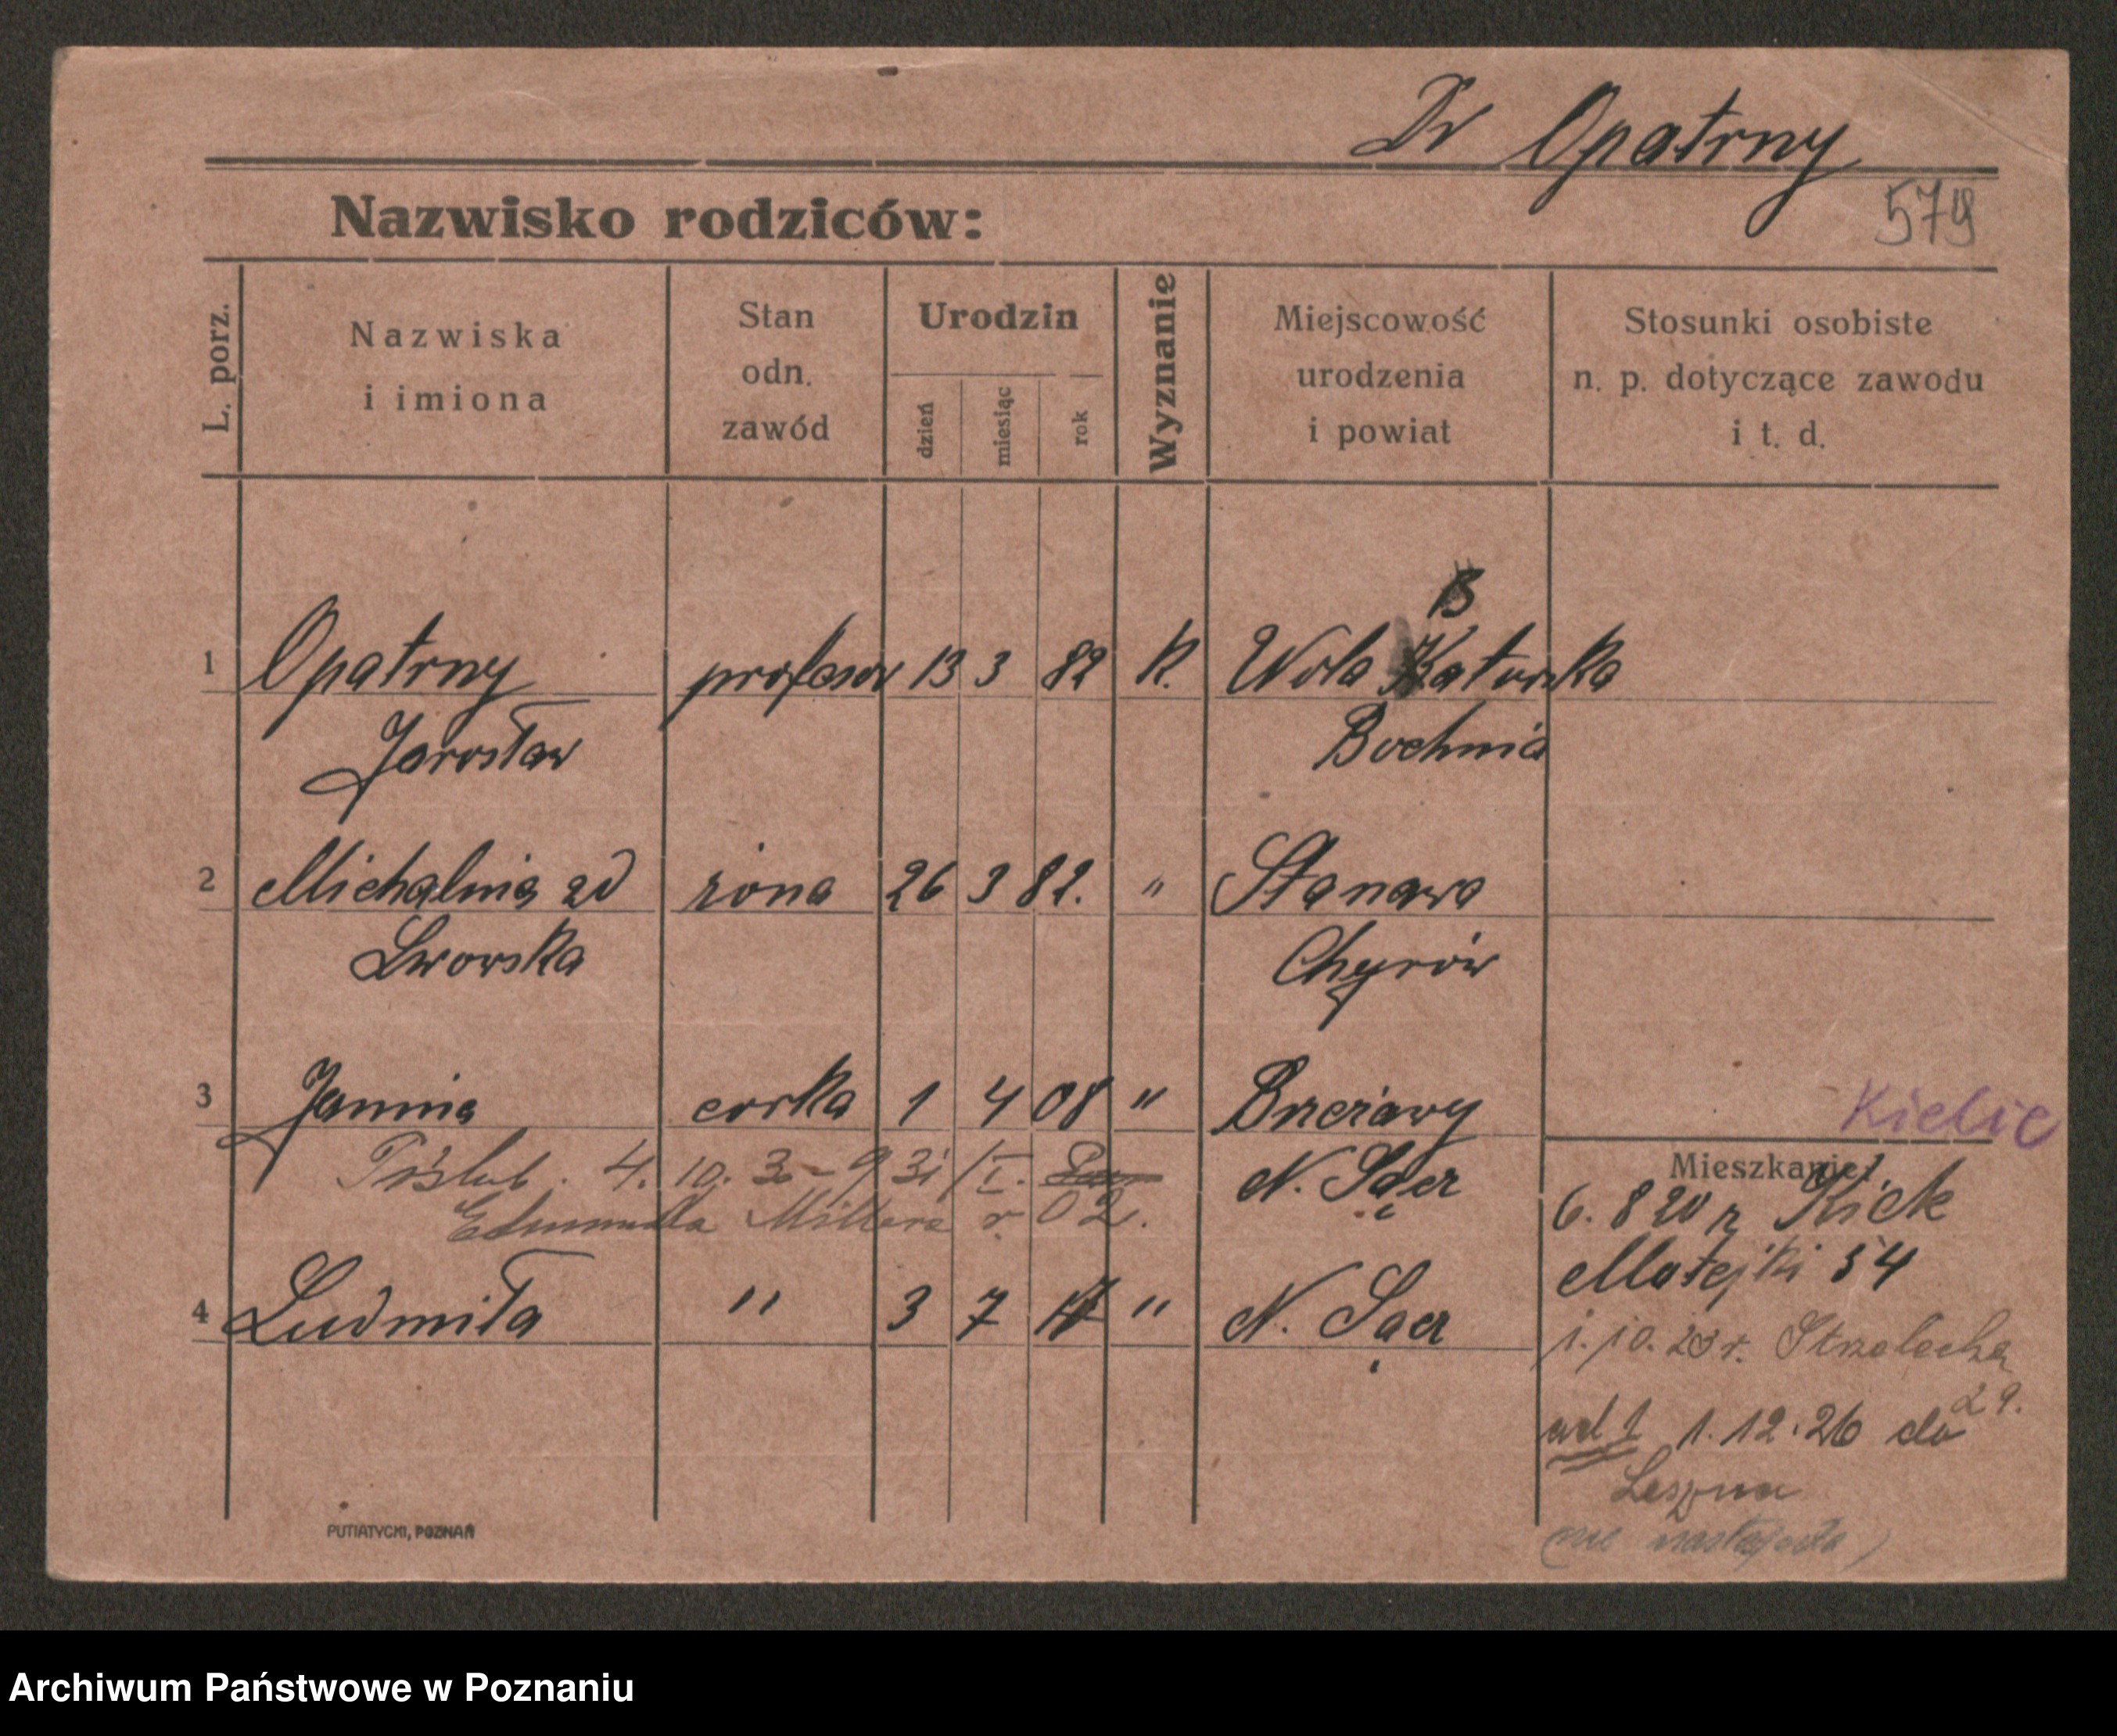 Dr Opatrny
579
Nazwisko rodziców:
L. porz.
Nazwiska
i imiona
Stan
odn.
zawód
Urodzin
dzień
miesiąc
rok
Wyznanie
Miejscowość
urodzenia
i powiat
Stosunki osobiste
n. p. dotyczące zawodu
i t. d.
B
1 Opatrny profesor 13 3 82 K. Wola Katurska
Jarosław Bochnia
2 Michalina zd żona 26 3 82. " Stanawa
Lwowska Chyrów
3 Janina corka 1 4 08 " Brzeżawy
Kielic
N. Sącz
4. 10. 3
Edmunda Millera r 02.
4 Ludmiła " 3 7 " N. Sącz
Mieszkanie
6. 8 20 r
Matejki 54
1. 10. 23 r. Strzelecka
29.
ad 1 1. 12. 26 do
Leszna
PUTIATYCKI, POZNAŃ
Archiwum Państwowe w Poznaniu